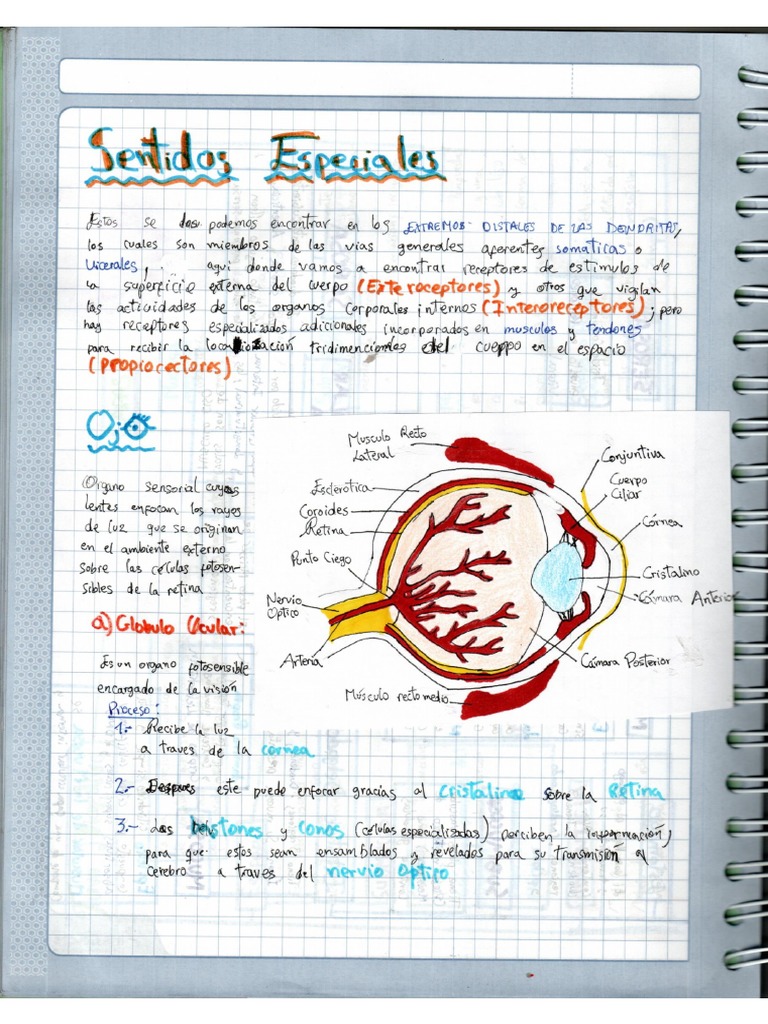 Sentidos Especiales
Estos se los podemos encontrar en los EXTREMOS DISTALES DE LAS DENDRITAS,
los cuales son miembros de las vias generales aferentes somáticas o
Vicerales, aqui donde vamos a encontrar receptores de estimulos de
la superficie externa del cuerpo (Exteroceptores) y otros que vigilan
las actividades de los organos corporales internos (Interoreceptores); pero
hay receptores especializados adicionales incorporados en musculos y tendones
para recibir la localización tridimencional del cuerpo en el espacio
(propiorectores)
Ojo
Organo sensorial cuyos
lentes enfocan los rayos
de luz que se originan
en el ambiente externo
sobre las células fotosen-
sibles de la retina
a) Globulo Ocular:
Es un organo fotosensible
encargado de la visión
Proceso:
1.- Recibe la luz
a traves de la cornea
Musculo Recto
Lateral
Esclerótica
Coroides
Retina
Punto Ciego
Nervio
Optico
Arteria
Músculo recto medio
Conjuntiva
Cuerpo
Ciliar
Córnea
Cristalino
Cámara Anterior
Cámara Posterior
2.- Despues este puede enfocar gracias al cristalino sobre la Retina
3.- Los bastones y conos (células especializadas) perciben la información,
para que estos sean ensamblados y revelados para su transmisión al
cerebro a traves del nervio optico